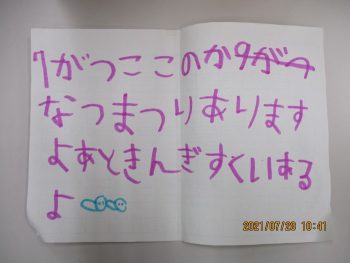 7がつここのか9がつ
なつまつりあります
よあときんぎすくいある
よ
2021/07/20 10:41